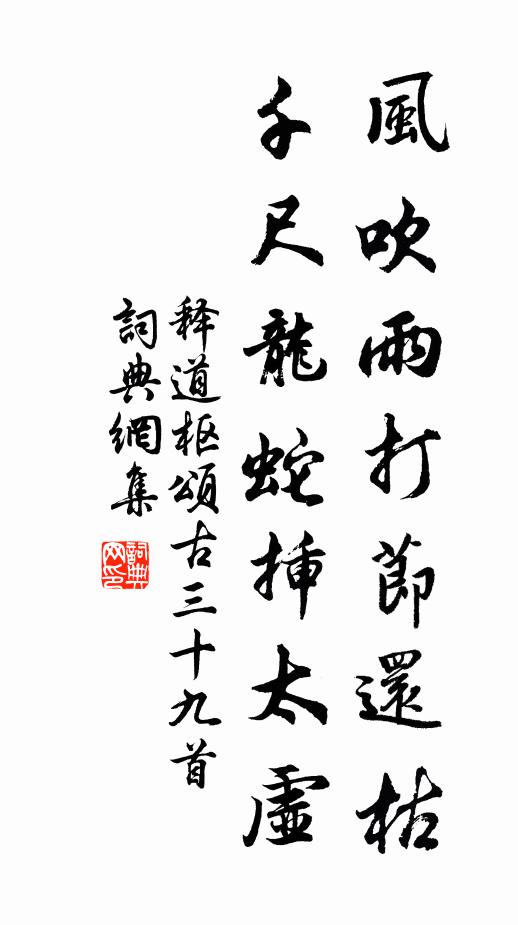 風吹雨打節還枯
千尺龍蛇揷太虛
释道枢頌古三十九首
詞典網集
詞典網印